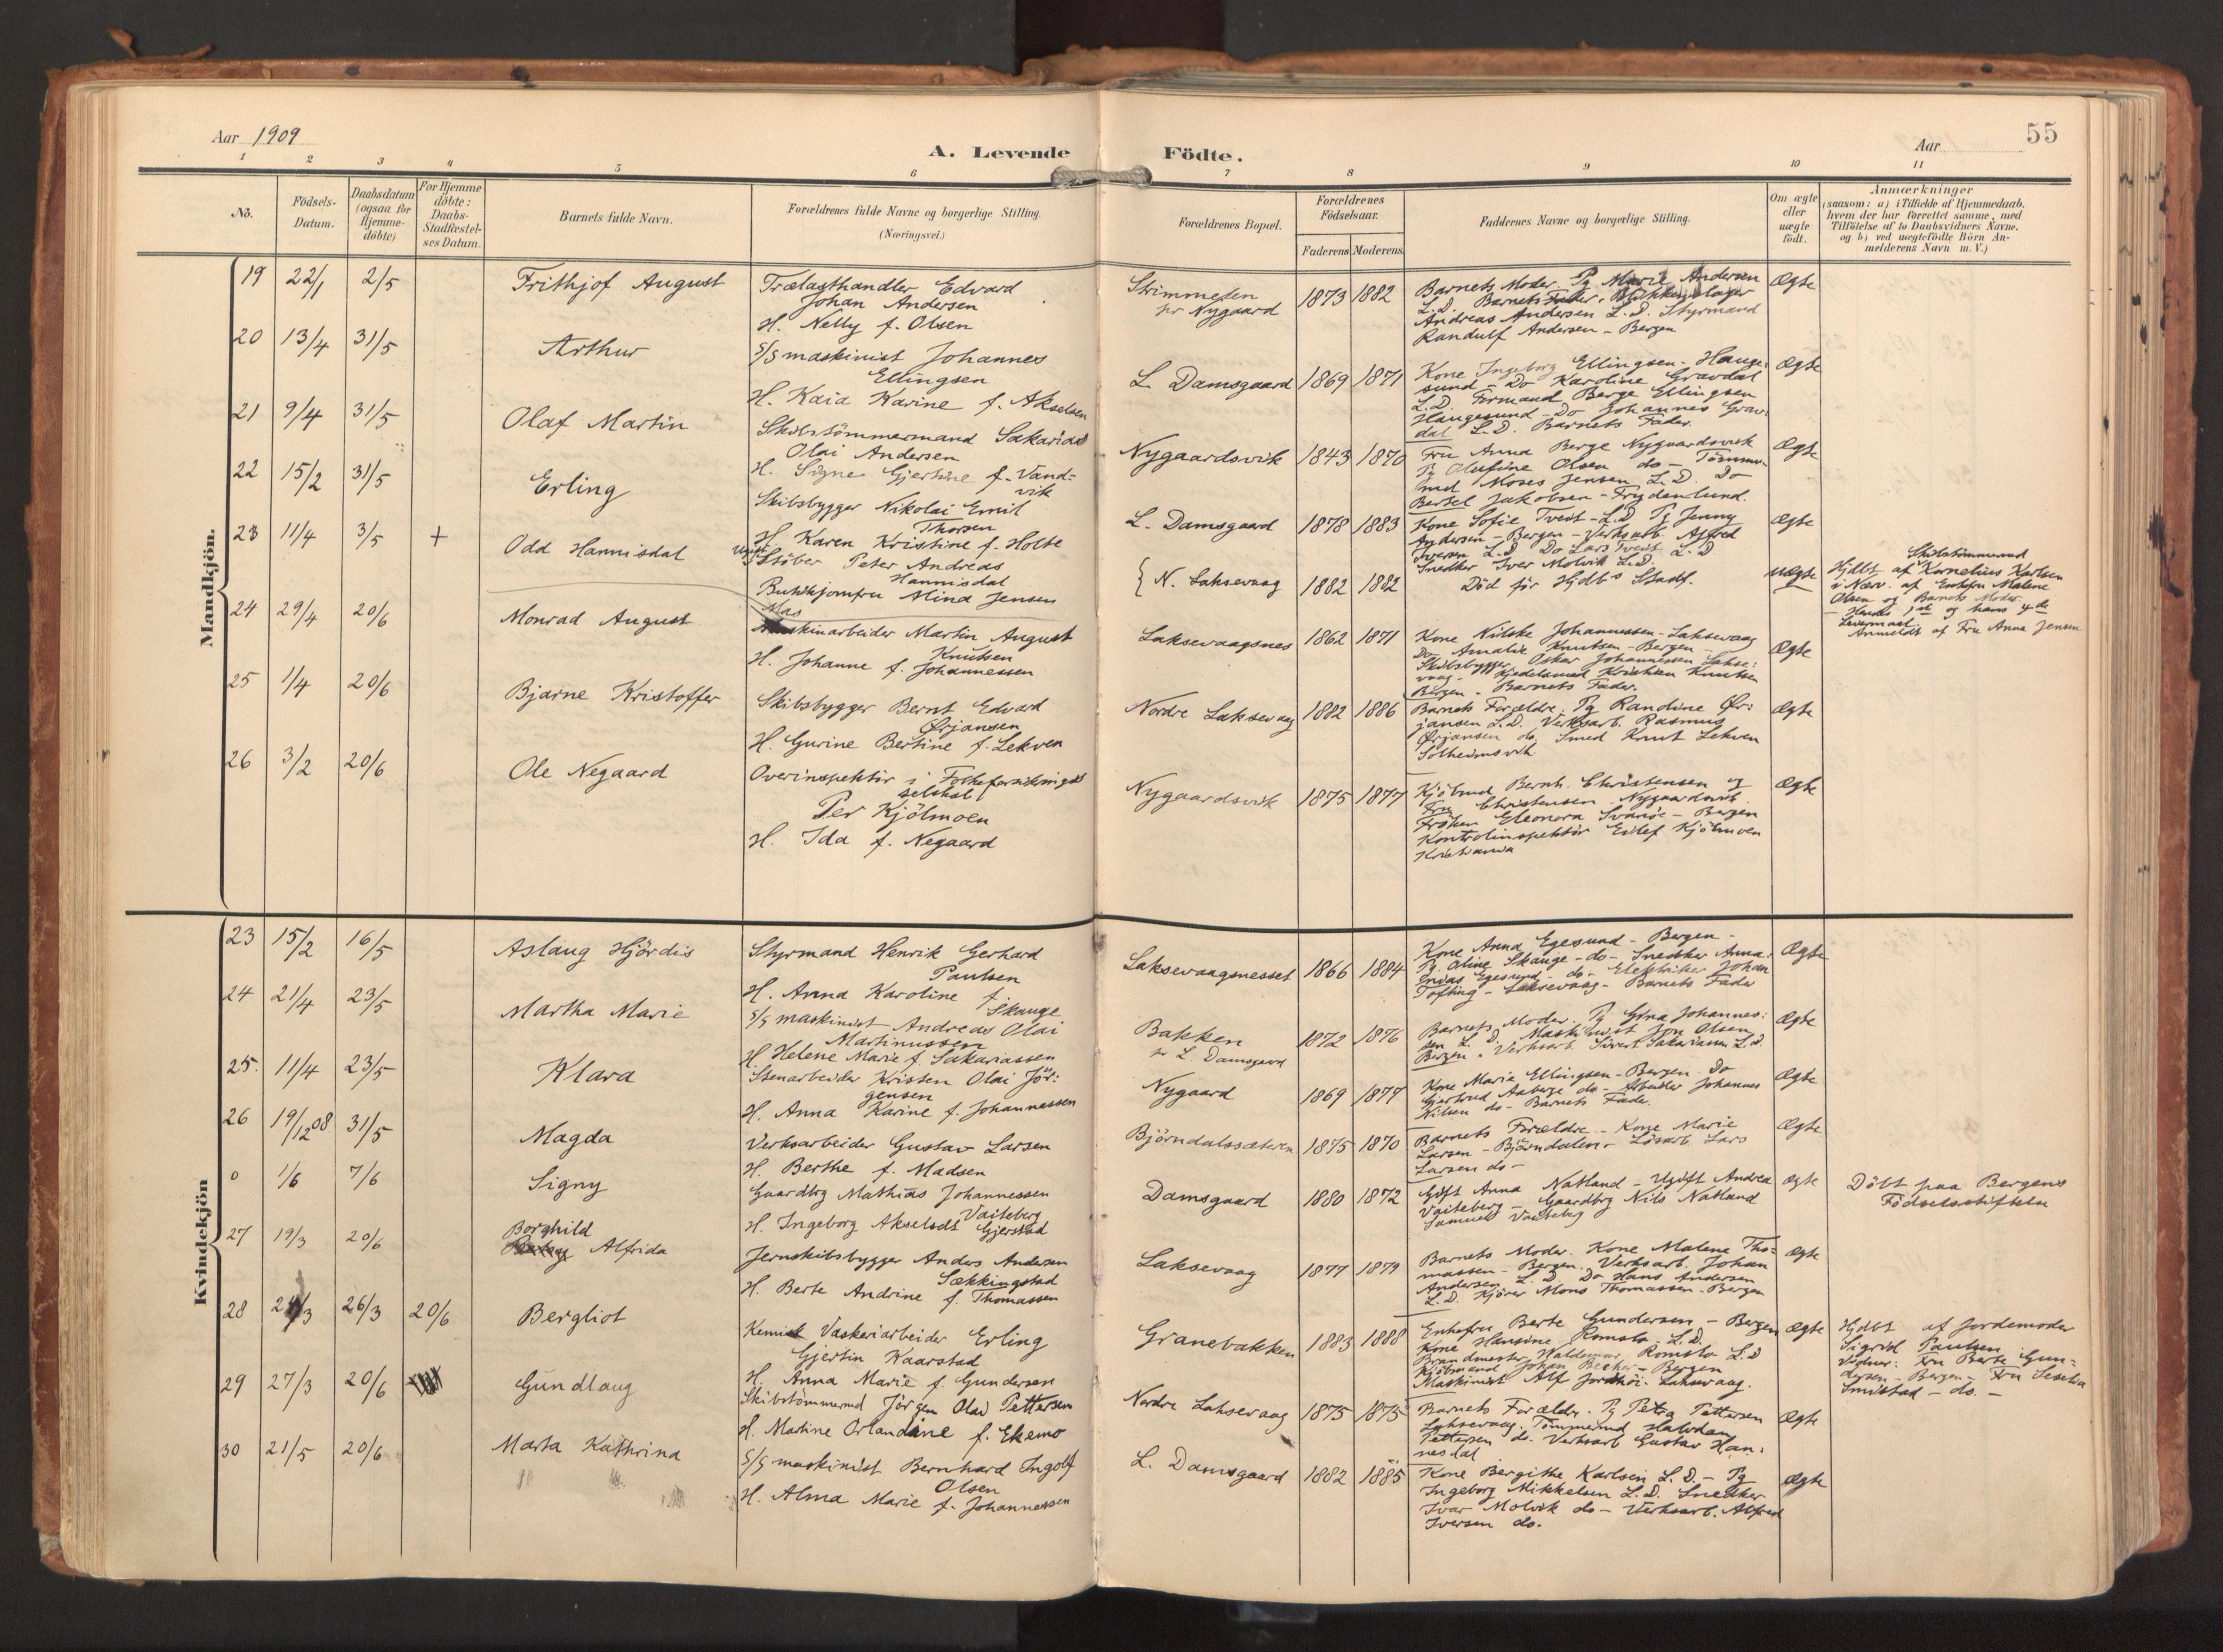 Aar 1909
A. Levende
Födte.
Aar
55
1 2 3 4 5 6 7 8 9 10 11
No.
Födsels-
Datum.
Daabsdatum
(ogsaa for
Hjemme-
döbte)
For Hjemme
döbte:
Daabs-
Stadfæstel-
ses Datum.
Barnets fulde Navn.
Forældrenes fulde Navne og borgerlige Stilling.
(Næringsvei.)
Forældrenes Bopæl.
Forældrenes
Födselsaar.
Faderens Moderens
Faddernes Navne og borgerlige Stilling.
Om ægte
eller
uægte
födt.
Anmærkninger
(saasom: a) i Tilfælde af Hjemmedaab.
hvem der har forrettet samme, med
Tilföielse af to Daabsvidners Navne.
og b) ved uægtefödte Börn An-
melderens Navn m.V.)
Mandkjön.
19 22/1 2/5 Frithjof August
Trælasthandler Edvard
Johan Andersen
H. Nelly f. Olsen
Strimmelen
pr Nygaard
1873 1882
Barnets Moder. Pg Marie Andersen
L.D. Barnets Fader. Blikkenslager
Andreas Andersen L.D. Styrmand
Randulf Andersen - Bergen
Ægte
20 13/4 31/5 Arthur
S/S maskinist Johannes
Ellingsen
H. Kaia Karine f. Akselsen
L. Damsgaard 1869 1871
Kone Ingeborg Ellingsen - Hauge:
sund - Do Karoline Gravdal
L.D. Formand Berge Ellingsen
Haugesund - Do Johannes Grav:
dal L.D. Barnets Fader.
Ægte
21 9/4 31/5 Olaf Martin
Skibstömmermand Sakarias
Olai Andersen
H. Signe Gjertine f. Vand=
vik
Nygaardsvik 1843 1870
Fru Anna Berge Nygaardsvik
Pg Olufine Olsen do - Tömmer-
md Moses Jensen L.D. Do
Bertel Jakobsen - Frydenlund.
Ægte
22 15/2 31/5 Erling
Skibsbygger Nikolai Emil
Thorsen
H. Karen Kristine f. Holte
L. Damsgaard 1878 1883
Kone Sofie Tveit - L.D. Pg Jenny
Andersen - Bergen - Verksarb. Alfred
Iversen L.D. Do Lars Tveit L.D
Snedker Iver Molvik L.D.
Ægte
23 11/4 3/5 + Odd Hannisdal
Ugift Stöber Peter Andreas
Hannisdal
Butikjomfru Alina Jensen
N. Laksevaag 1882 1882
Död för Hjdbs Stadf.
uægte
Skibstömmermd
Hjdbt af Kornelius Karlsen
i Nærv. af Enkefru Malene
Olsen og Barnets Moder
Hendes 1ste og hans 4de
Leiermaal.
Anmeldt af Fru Anna Jensen
24 29/4 20/6 Monrad August
Mas
Maskinarbeider Martin August
Knutsen
H. Johanne f. Johannessen
Laksevaagsnes 1862 1871
Kone Nilske Johannessen - Laksevaag
Do Amalie Knutsen - Bergen -
Skibsbygger Oskar Johannessen Lakse:
vaag - Kjedelsmed Kristian Knutsen
Bergen. Barnets Fader.
Ægte
25 1/4 20/6 Bjarne Kristoffer
Skibsbygger Bernt Edvard
Ørjansen
H. Gurine Bertine f. Lekven
Nordre Laksevaag 1882 1886
Barnets Forældre. Pg Randine Ør:
jansen L.D. Verksarb. Rasmus
Ørjansen do. Smed Knut Lekven
Solheimsvik
Ægte
26 3/2 20/6 Ole Negaard
Overinspektör i Folkeforsikringss
selskat
Per Kjölmoen
H. Ida f. Negaard
Nygaardsvik 1875 1877
Kjöbmd Bernh. Christensen og
Fru Christensen Nygaardsvik
Fröken Eleonora Svanöe - Bergen
Kontrolinspektör Eilef Kjölmoen
Kristiania
Ægte
Kvindekjön
23 15/2 16/5 Aslaug Hjördis
Styrmand Henrik Gerhard
Paulsen
H. Anna Karoline f.
Skauge
Laksevaagsnesset 1866 1884
Kone Anna Egesund - Bergen -
Pg. Aline Skauge - do - Snedker Anna:
nias Egesund - do - Elektriker Johan
Tofting - Laksevaag - Barnets Fader
Ægte
24 21/4 23/5 Martha Marie
S/S maskinist Andreas Olai
Martinussen
H. Helene Marie f. Sakariassen
Bakken
pr L. Damsgaard
1872 1876
Barnets Moder. Pg Gina Johannes:
sen L.D. Maskinist Jon Olsen
Bergen. Verksarb. Sivert Sakariassen L.D.
Ægte
25. 11/4 23/5 Klara
Stenarbeider Kristen Olai Jör:
gensen
H. Anna Karine f. Johannessen
Nygaard 1869 1877
Kone Marie Ellingsen - Bergen. Do
Gjertrud Aaberge do - Arbeider Johannes
Nilsen do - Barnets Fader.
Ægte
26 19/12 08 31/5 Magda
Verksarbeider Gustav Larsen
H. Berthe f. Madsen
Björndalssæteren 1875 1870
Barnets Forældre. - Kone Marie
Larsen - Björndalen - Lösarb Lars
Larsen do -
Ægte
0 1/6 7/6 Signy
Gaardbrg Mathias Johannessen
Vaiteberg
H. Ingeborg Akselsdt Gjerstad
Damsgaard 1880 1872
Gift Anna Natland - Ugift Andrea
Vaiteberg - Gaardbrg Nils Natland
Samuel Vaiteberg
Ægte
Döbt paa Bergens
Födselsstiftelse
27 19/3 20/6 Borghild
Alfrida
Jernskibsbygger Anders Andersen
Sækkingstad
H. Berte Andrine f. Thomassen
Laksevaag 1877 1879
Barnets Moder. Kone Malene Tho=
massen - Bergen. Verksarb. Johan
Andersen L.D. Do Hans Andersen
L.D. Kjörer Mons Thomassen - Bergen
Ægte
28 26/3 20/6 Bergliot
Kemisk Vaskeriarbeider Erling
Gjertin Kaarstad
H. Anna Marie f. Gundersen
Granebakken 1883 1888
Enkefru Berte Gundersen - Bergen
Kone Hansine Romslo - L.D.
Brandmester Waldemar Romslo L.D
Kjöbmand Johan Becker - Bergen
Maskinist Alf Jordhöi. Laksevaag.
Ægte
Hjdbt af Jordemoder
Sigrid Paulsen
Vidner: Fru Berte Gun=
dersen - Bergen - Fru
Smistad - do. -
29 27/3 20/6 Gundlaug
Skibstömmermd Jörgen Olai Pettersen
H. Martine Orlandine f. Ekemo
Nordre Laksevaag 1875 1875
Barnets Forældre. Pg Petra Pettersen
Laksevaag. Tömmermd Halvdan
Pettersen do. Verksarb Gustav Han:
nesdal
Ægte
30 21/5 20/6 Marta Kathrina
S/S maskinist Bernhard Ingolf
Olsen
H. Alma Marie f. Johannessen
L. Damsgaard 1882 1885
Kone Bergithe Karlsen L.D. - Pg
Ingeborg Mikkelsen L.D. Snedker
Ivar Molvik do - Verksarb. Alfred
Iversen do.
Ægte